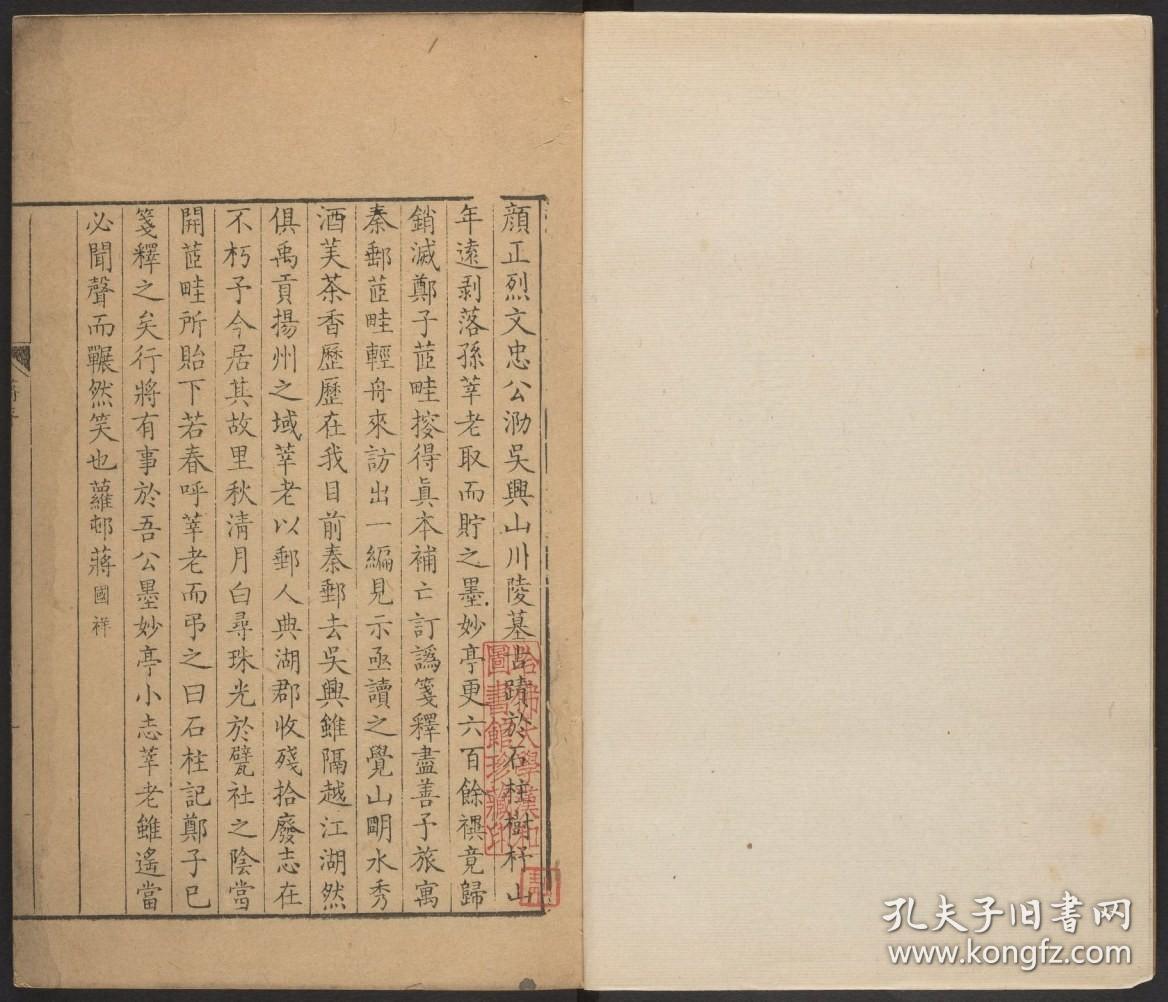 顔正烈文忠公泐吳興山川陵墓古蹟於石柱樹杼山
年遠剥落孫莘老取而貯之墨妙亭更六百餘禩竟歸
銷滅鄭子芷畦搜得眞本補亡訂譌箋釋盡善予旅寓
秦郵芷畦輕舟來訪出一編見示亟讀之覺山明水秀
酒美茶香歷歷在我目前秦郵去吳興雖隔越江湖然
俱禹貢揚州之域莘老以郵人典湖郡收殘拾廢志在
不朽予今居其故里秋清月白尋珠光於甓社之陰當
開芷畦所貽下若春呼莘老而弔之曰石柱記鄭子已
箋釋之矣行將有事於吾公墨妙亭小志莘老雖遙當
必聞聲而囅然笑也蘿邨蔣國祥
哈佛大學漢和
圖書館珍藏印
孔夫子旧书网
www.kongfz.com